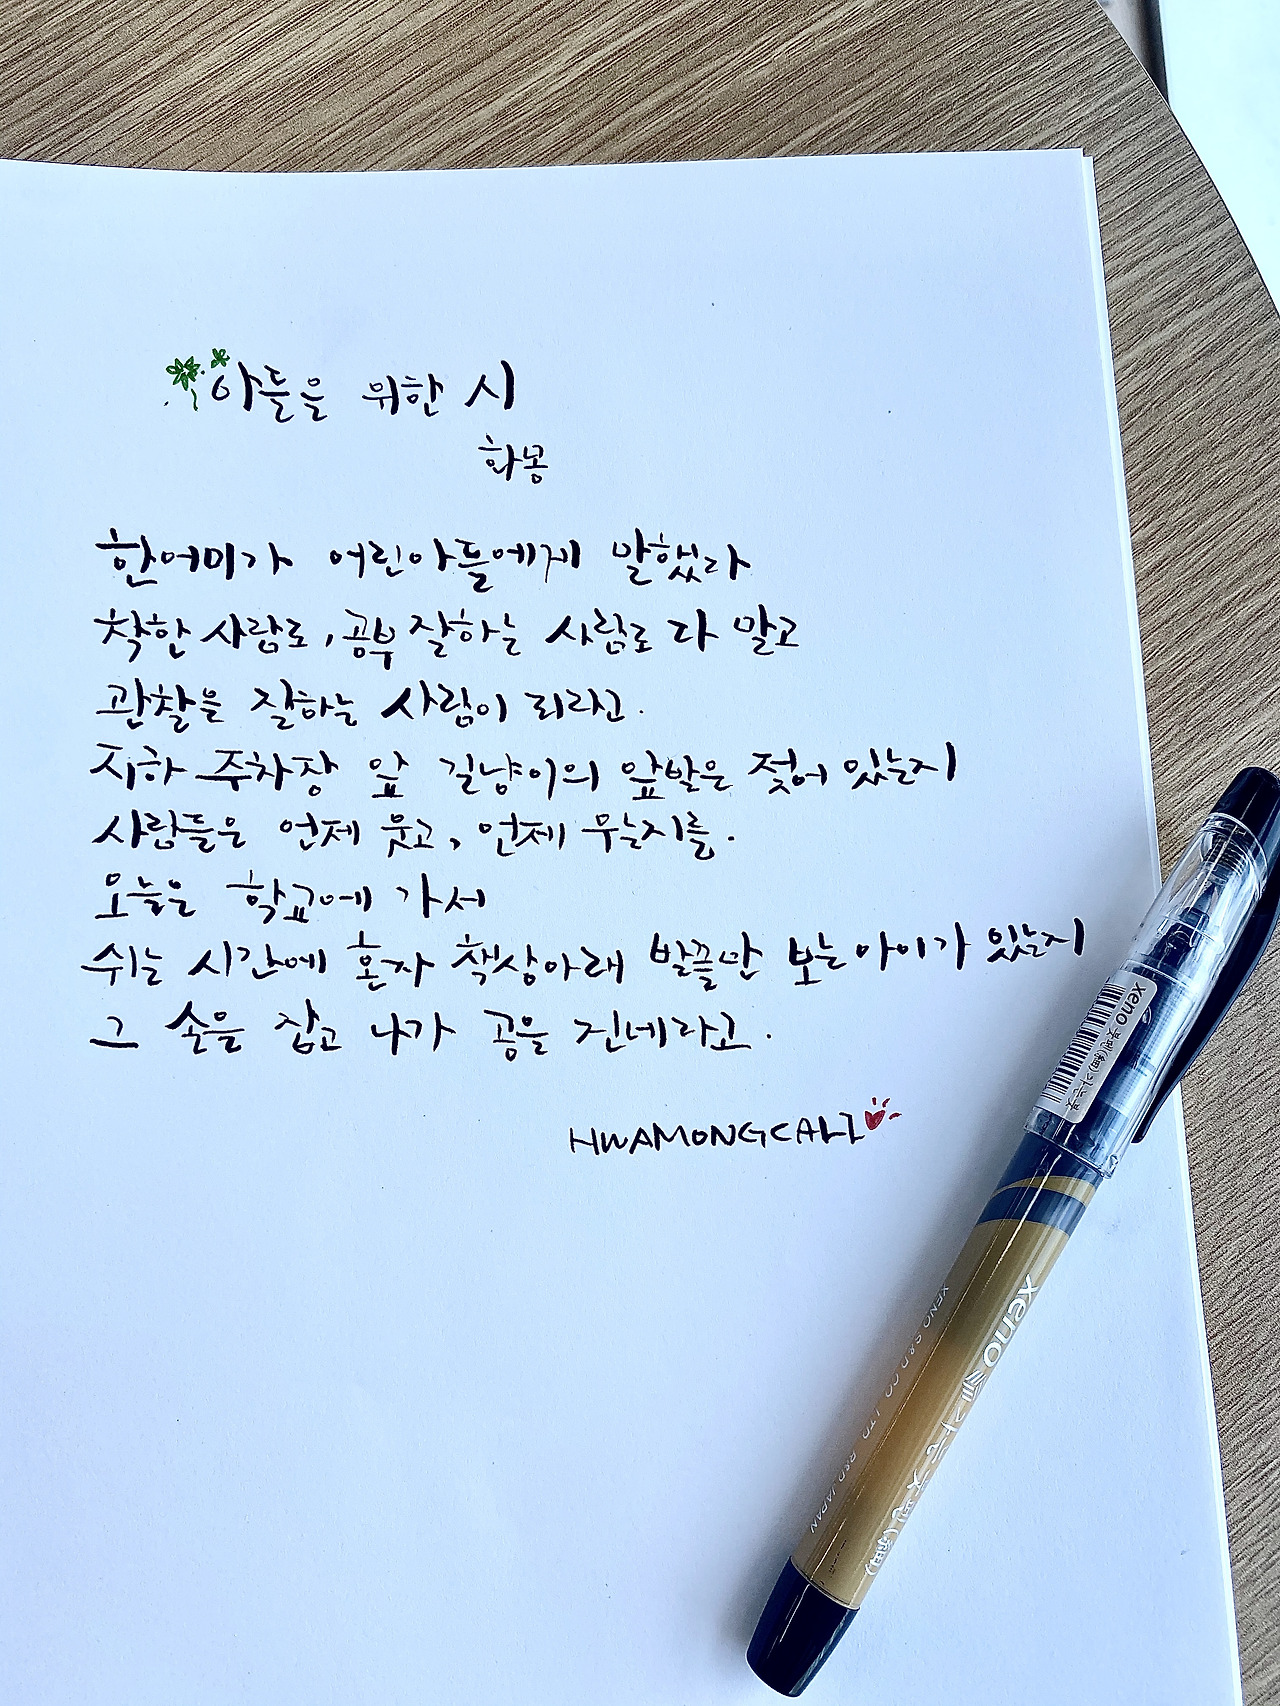 아들을 위한 시
화몽
한 어미가 어린 아들에게 말했다
착한 사람도, 공부 잘하는 사람도 다 말고
관찰을 잘하는 사람이 되라고.
지하 주차장 앞 길냥이의 앞발은 젖어 있는지
사람들은 언제 웃고, 언제 우는지를.
오늘은 학교에 가서
쉬는 시간에 혼자 책상아래 발끝만 보는 아이가 있는지
그 손을 잡고 나가 공을 건네라고.
HWAMONGCALLI
xeno 붓펜(細) 가는붓
xeno 가는붓펜(細)
XENO S&D CO., LTD. R&D JAPAN